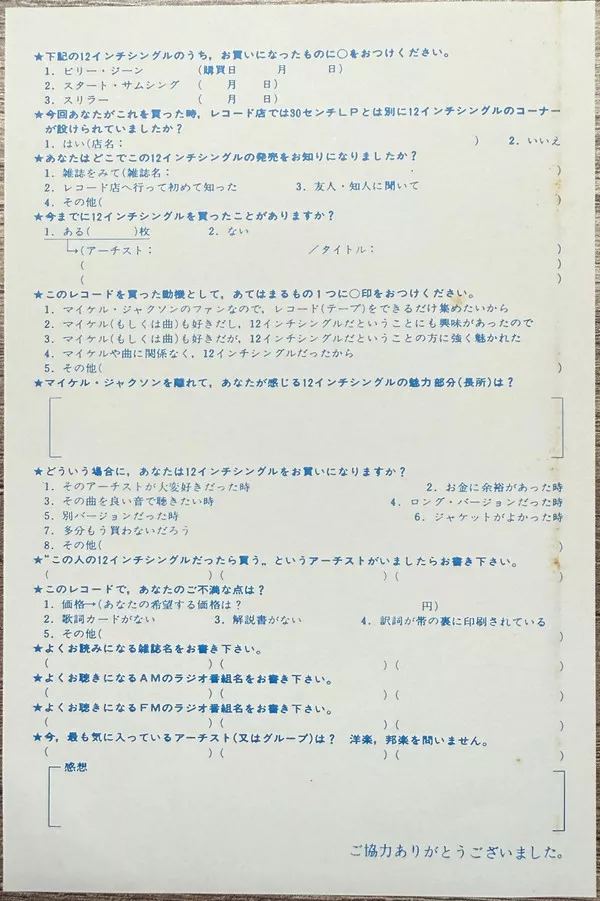 ★下記の12インチシングルのうち，お買いになったものに○をおつけください。
1．ビリー・ジーン　　　　（購買日　　　月　　　日）
2．スタート・サムシング　（　　月　　日）
3．スリラー　　　　　　　（　　月　　日）
★今回あなたがこれを買った時，レコード店では30センチLPとは別に12インチシングルのコーナー
が設けられていましたか？
1．はい（店名：　　　　　　　　　　　　　　　　　　　　　）　2．いいえ
★あなたはどこでこの12インチシングルの発売をお知りになりましたか？
1．雑誌をみて（雑誌名：　　　　　　　　　　　　　　　　　　　　　　　　）
2．レコード店へ行って初めて知った　　　　3．友人・知人に聞いて
4．その他（　　　　　　　　　　　　　　　　　　　　　　　　　　　　　）
★今までに12インチシングルを買ったことがありますか？
1．ある（　　　）枚　　　　2．ない
→（アーチスト：　　　　　　　　　　／タイトル：　　　　　　　　　　）
（　　　　　　　　　　　　　　　　　　　　　　　　　　　　　　　　）
（　　　　　　　　　　　　　　　　　　　　　　　　　　　　　　　　）
★このレコードを買った動機として，あてはまるもの1つに○印をおつけください。
1．マイケル・ジャクソンのファンなので，レコード（テープ）をできるだけ集めたいから
2．マイケル（もしくは曲）も好きだし，12インチシングルだということにも興味があったので
3．マイケル（もしくは曲）も好きだが，12インチシングルだということの方に強く魅かれた
4．マイケルや曲に関係なく，12インチシングルだったから
5．その他（　　　　　　　　　　　　　　　　　　　　　　　　　　　　　）
★マイケル・ジャクソンを離れて，あなたが感じる12インチシングルの魅力部分（長所）は？
★どういう場合に，あなたは12インチシングルをお買いになりますか？
1．そのアーチストが大変好きだった時　　　　　　2．お金に余裕があった時
3．その曲を良い音で聴きたい時　　　　　　4．ロング・バージョンだった時
5．別バージョンだった時　　　　　　　　　　6．ジャケットがよかった時
7．多分もう買わないだろう
8．その他（　　　　　　　　　　　　　　　　　　　　　　　　　　　　　）
★“この人の12インチシングルだったら買う„というアーチストがいましたらお書き下さい。
（　　　　　　　　　）（　　　　　　　　　）（　　　　　　　　　）
★このレコードで，あなたのご不満な点は？
1．価格→（あなたの希望する価格は？　　　　　　　　　　円）
2．歌詞カードがない　　3．解説書がない　　　4．訳詞が帯の裏に印刷されている
5．その他（　　　　　　　　　　　　　　　　　　　　　　　　　　　　　）
★よくお読みになる雑誌名をお書き下さい。
（　　　　　　　　　）（　　　　　　　　　）（　　　　　　　　　）
★よくお聴きになるAMのラジオ番組名をお書き下さい。
（　　　　　　　　　）（　　　　　　　　　）（　　　　　　　　　）
★よくお聴きになるFMのラジオ番組名をお書き下さい。
（　　　　　　　　　）（　　　　　　　　　）（　　　　　　　　　）
★今，最も気に入っているアーチスト（又はグループ）は？　洋楽，邦楽を問いません。
（　　　　　　　　　）（　　　　　　　　　）（　　　　　　　　　）
感想
ご協力ありがとうございました。